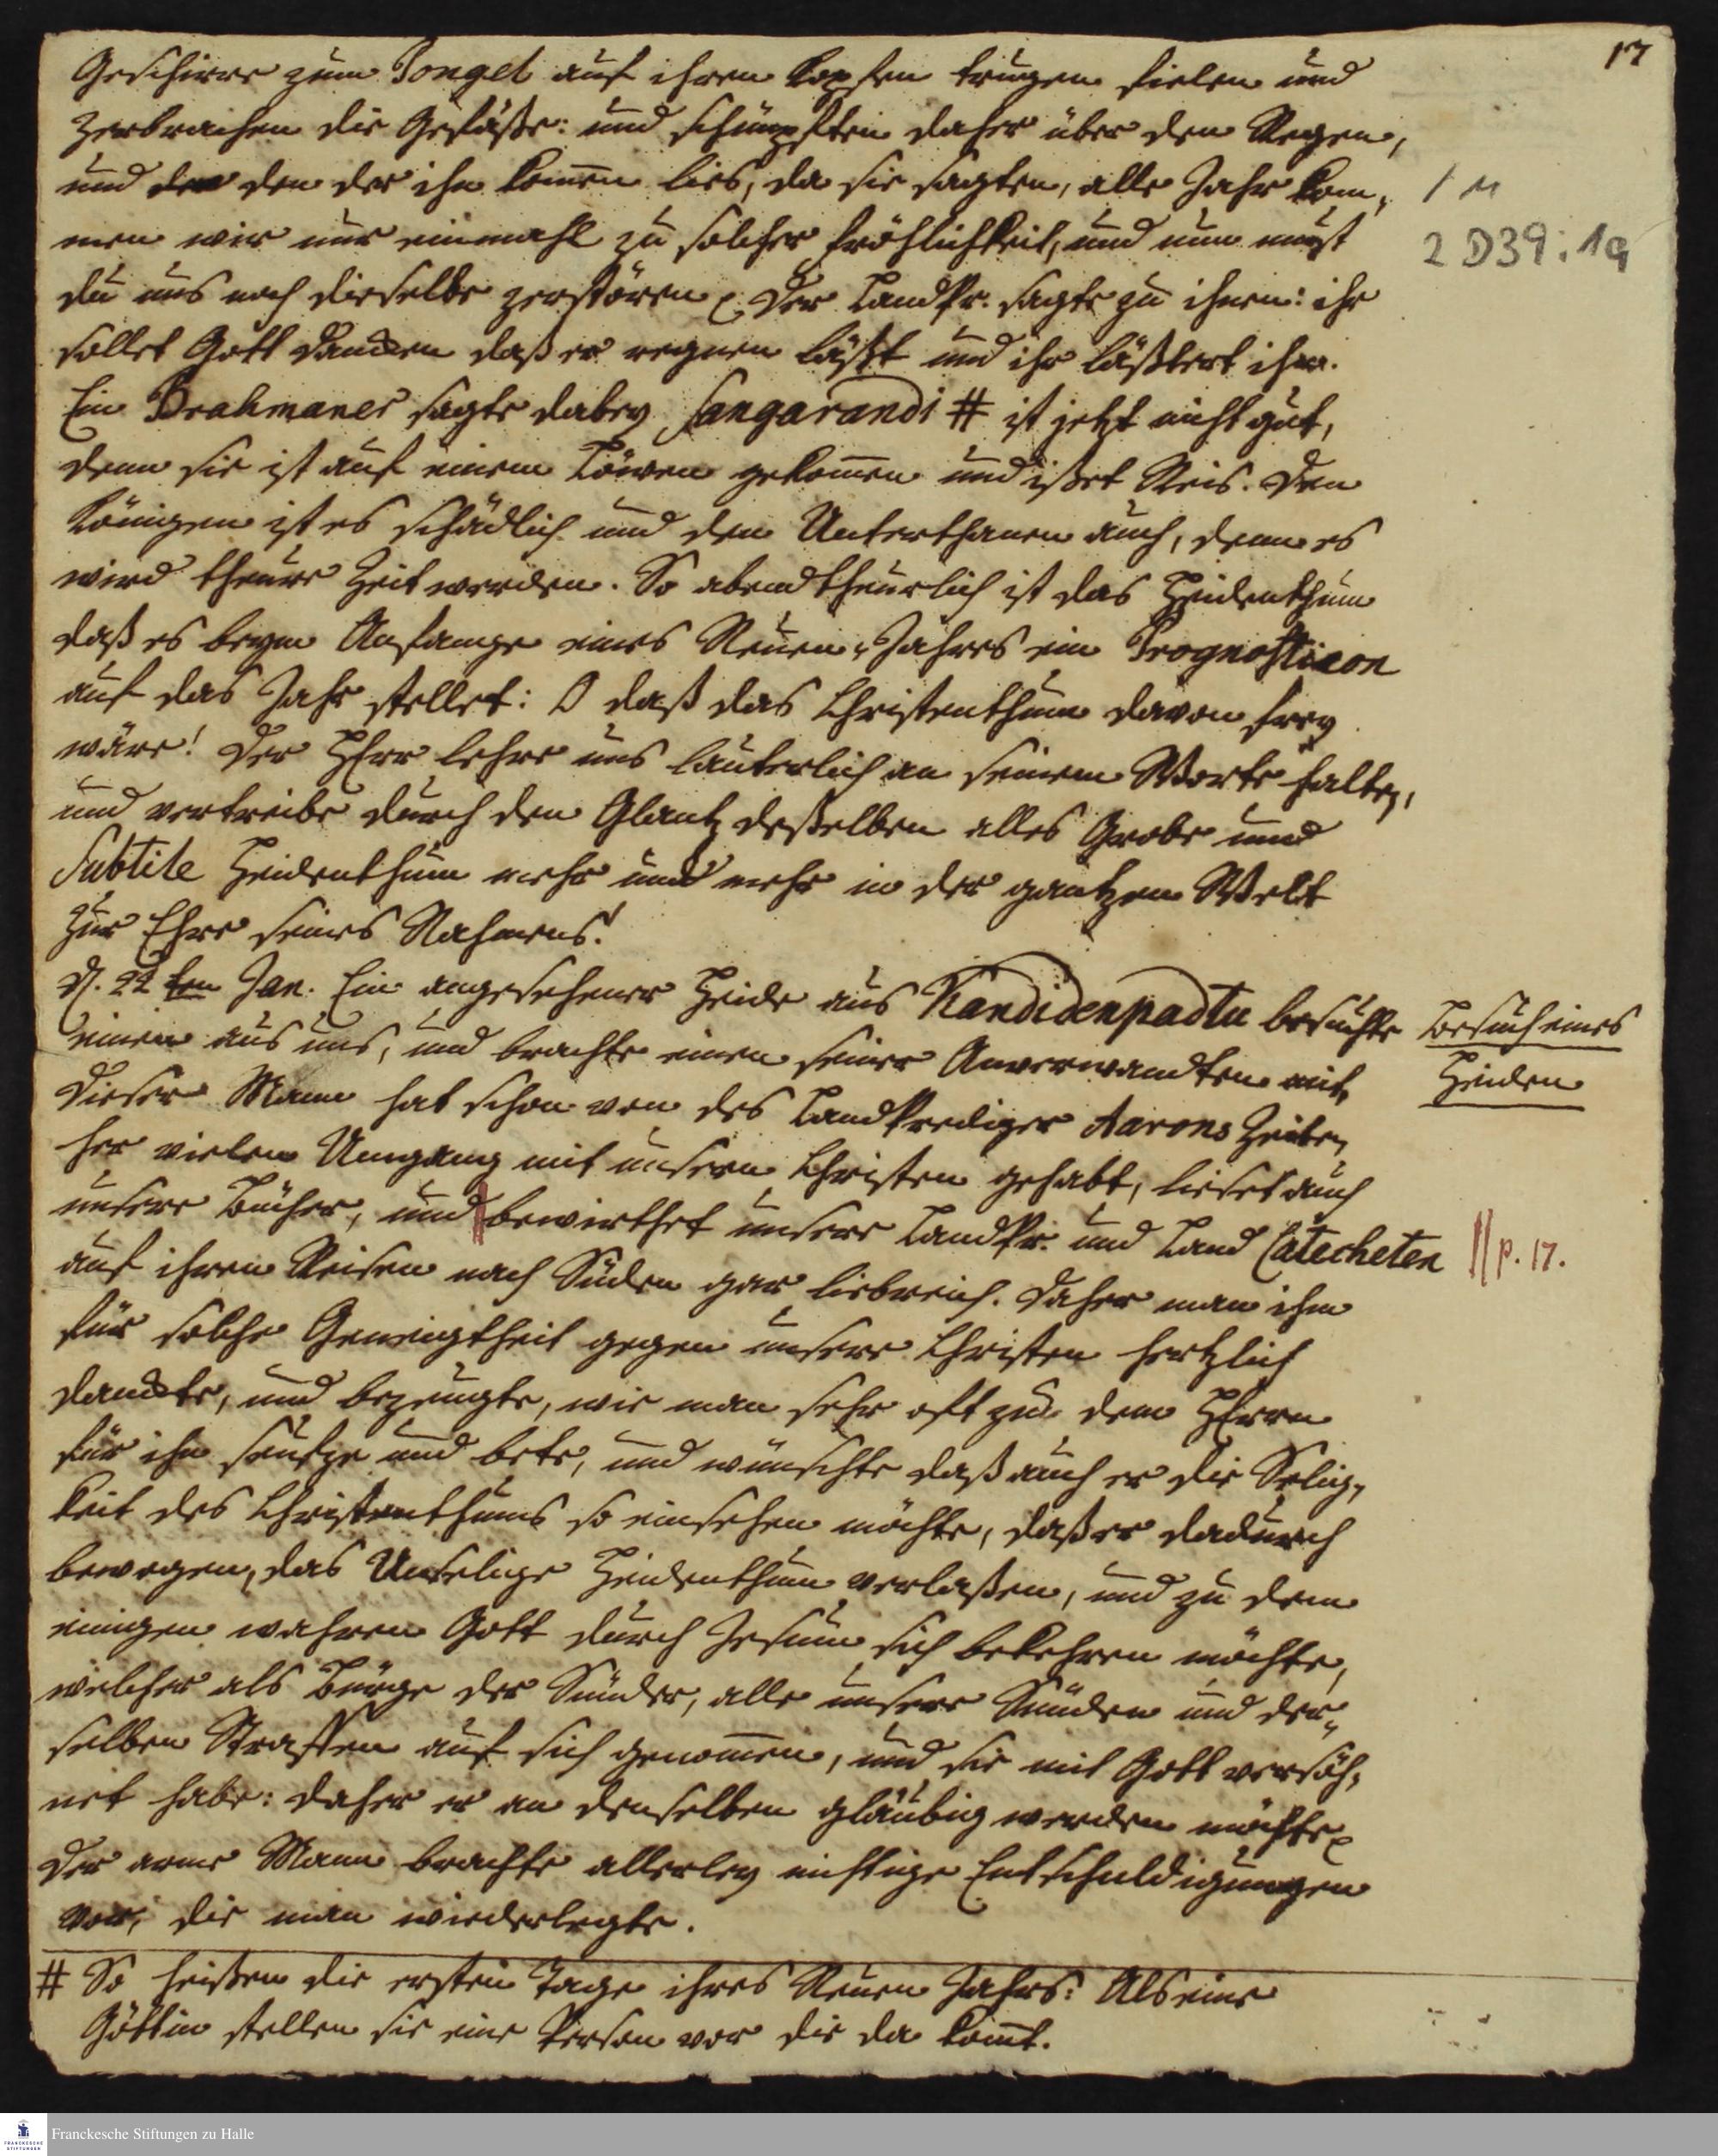 17
Geschirre zum Pongel auf ihren Kopfen trugen fielen und
zerbrachen die Gefäße: und schimpften daher über den Regen,
und den der ihn komen lies, da sie sagten, alle Jahr kom-
men wir nur einmahl zu solcher Fröhlichkeit, und nun must
du uns noch dieselbe zerstören p. Der LandPr. sagte zu ihnen: ihr
sollet Gott dancken daß er regnen läßt und ihr läßtert ihn.
Ein Brahmaner sagte dabey Sangarandi # ist jetzt nicht gut,
denn sie ist auf einem Löwen gekomen und ißet Reis. Den
Königen ist es schädlich und den Unterthanen auch, denn es
wird theure Zeit werden. So abendtheurlich ist das Heidenthum
daß es beym Anfange eines Neuen-Jahres ein Prognosticon
auf das Jahr stellet: O daß das Christenthum davon frey
wäre! Der HErr lehre uns lauterlich an seinem Worte halten,
und vertreibe durch den Glantz deßelben alles Grobe und
Subtile Heidenthum mehr und mehr in der gantzen Welt
zur Ehre seines Nahmens!
d. 22ten Jan. Ein angesehener Heide aus Kandidenpadtu besuchte
einen aus uns, und brachte einen seiner Anverwandten mit,
Dieser Mann hat schon von des LandPrediger Aarons Zeiten
her vielen Umgang mit unsern Christen gehabt, lieset auch
unsere Bücher, und bewirthet unsere LandPr. und Land Catecheten
auf ihren Reisen nach Süden gar liebreich. Daher man ihm
für solche Geneigtheit gegen unsere Christen hertzlich
danckte, und bezeugte, wie man sehr oft zu dem HErrn
für ihn seufze und bete, und wünschte daß auch er die Selig-
keit des Christenthums so einsehen möchte, daß er dadurch
bewogen, das Unselige Heidenthum verlaßen, und zu dem
einigen wahren Gott durch Jesum sich bekehren möchte,
welcher als Bürge der Sünder, alle unsere Sünden und der-
selben Straffen auf sich genomen, und sie mit Gott versöh-
net habe: daher er an denselben gläubig werden möchte p
Der arme Mann brachte allerley nichtige Entschuldigungen
vor, die man wiederlegte.
# So heißen die ersten Tage ihres Neuen Jahrs: Als eine
Göttin stellen sie eine Person vor die da komt.
1 M
2 D39:19
Besuch eines
Heiden
p. 17.
Franckesche Stiftungen zu Halle
FRANCKESCHE
STIFTUNGEN